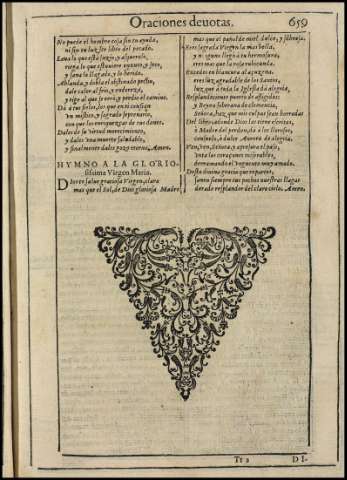 Oraciones deuotas.
659
No puede el hombre cosa sin tu ayuda,
ni sin tu luz ser libre del pecado.
Laua lo que está suzio, y asqueroso,
riega lo que estuuiere enjuto, y seco,
y sana lo llagado, y lo herido.
Ablanda, y dobla el obstinado pecho,
dale calor al frio, y endereça,
y rige al que se errò, y perdio el camino.
Dà à tus fieles, los que en ti confian
un mistico, y sagrado septenario,
con que los enriquezgas de tus dones.
Dales de la virtud merecimiento,
y dales una muerte saludable,
y finalmente dales gozo eterno, Amen.
HYMNO A LA GLORIO-
sissima Virgen Maria.
Dios te salue graciosa Virgen, clara
mas que el Sol, de Dios gloriosa Madre
mas que el panal de miel dulce, y sabrosa,
Eres sagrada Virgen la mas bella,
y ni ignum llegó a tu hermosura,
eres mas que la rosa rubicunda.
Excedes en blancura al açucena,
eres luz agradable de los Santos,
luz, que a toda la Iglesia dà alegria,
Resplandeciente puerto de afligidos:
y Reyna soberana de clemencia,
Señora, haz que mis culpas sean borradas
Del libro, adonde Dios las tiene escritas,
ò Madre del perdon, dà a los llorosos,
consuelo, ò dulce Aurora de alegria.
Ven, ven, dexatu, y apresura el paso,
unta los coraçones miserables,
derramando el inguento muy amado.
Desta diuina gracia que esparzes,
sanen siempre tus pechos nuestras llagas
dorado resplandor del claro cielo. Amen.
Tt 2
DI-